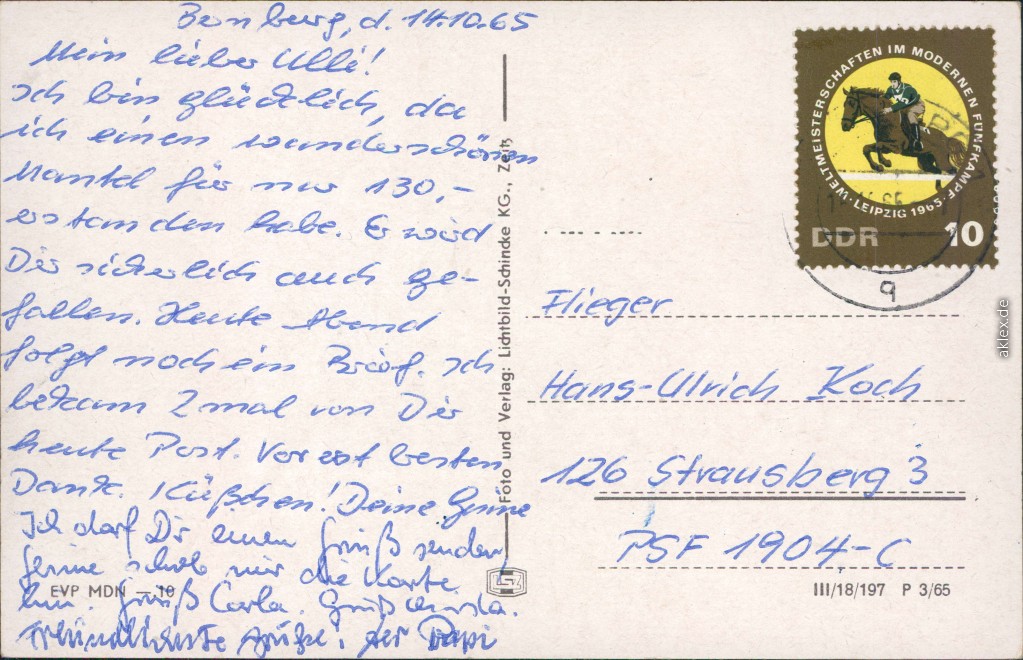 Bernburg, d. 14.10.65
Mein lieber Ulli!
Ich bin glücklich, da
ich einen wunderschönen
Mantel für nur 130,-
erstanden habe. Er wird
Dir sicherlich auch ge-
fallen. Heute Abend
folgt noch ein Brief. Ich
bekam 2 mal von Dir
heute Post. Vorerst besten
Dank. Küßchen! Deine
Ich darf Dir einen Gruß senden
schob mir die Karte
hin. Gruß Carla. Gruß
Freundlichste Grüße, der Papi
EVP MDN — 10
Foto und Verlag: Lichtbild-Schincke KG., Zeitz
WELTMEISTERSCHAFTEN IM MODERNEN FÜNFKAMPF · LEIPZIG 1965
DDR 10
q
Flieger
Hans-Ulrich Koch
126 Strausberg 3
PSF 1904,-C
III/18/197 P 3/65
aklex.de